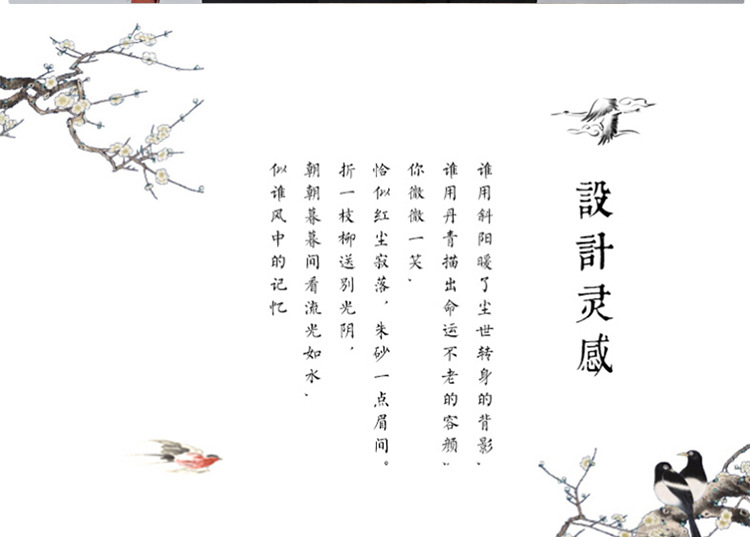 設計灵感
谁用斜阳暖了尘世转身的背影、
谁用丹青描出命运不老的容颜、
你微微一笑、
恰似红尘寂落，朱砂一点眉间。
折一枝柳送别光阴，
朝朝暮暮间看流光如水、
似谁风中的记忆